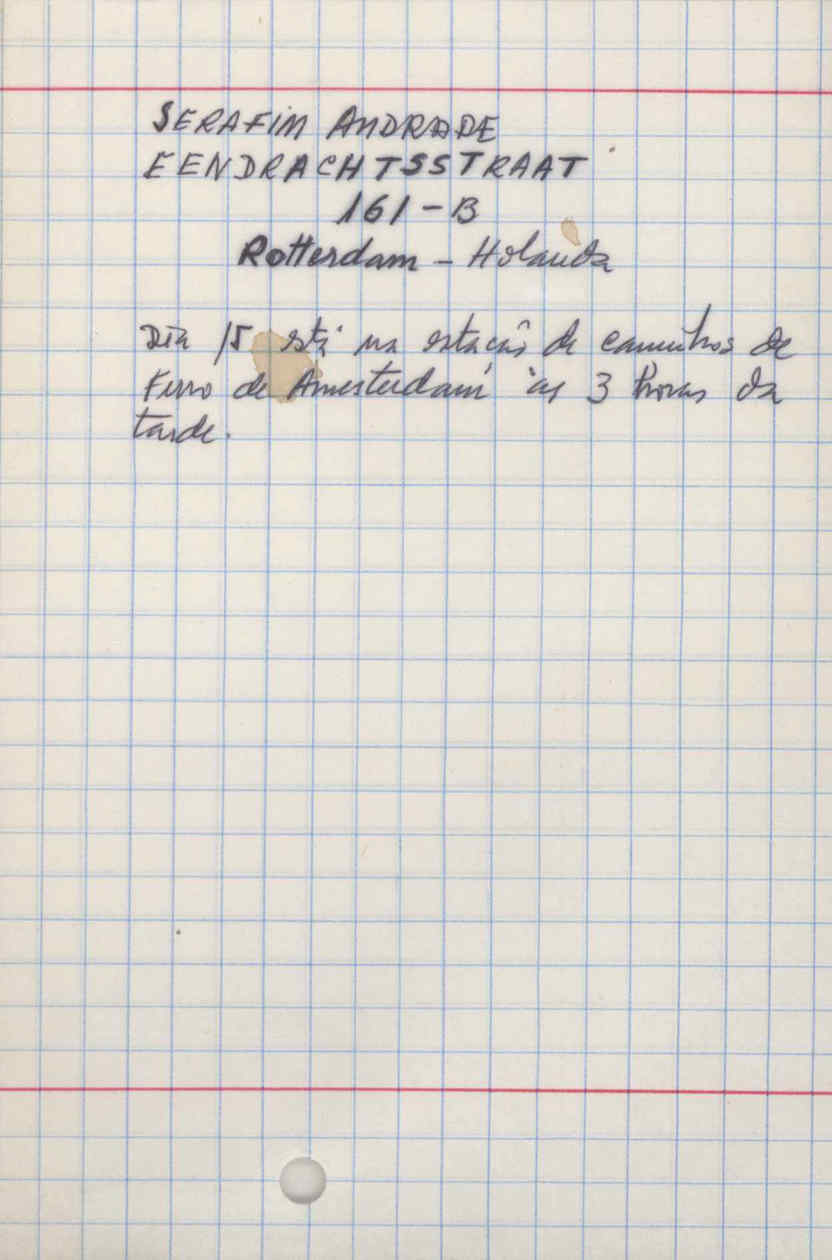 SERAFIM ANDRADE
EENDRACHTSSTRAAT
161-B
Rotterdam - Holanda
Dia 15 está na estação de caminhos de
Ferro de Amesterdam às 3 horas da
tarde.